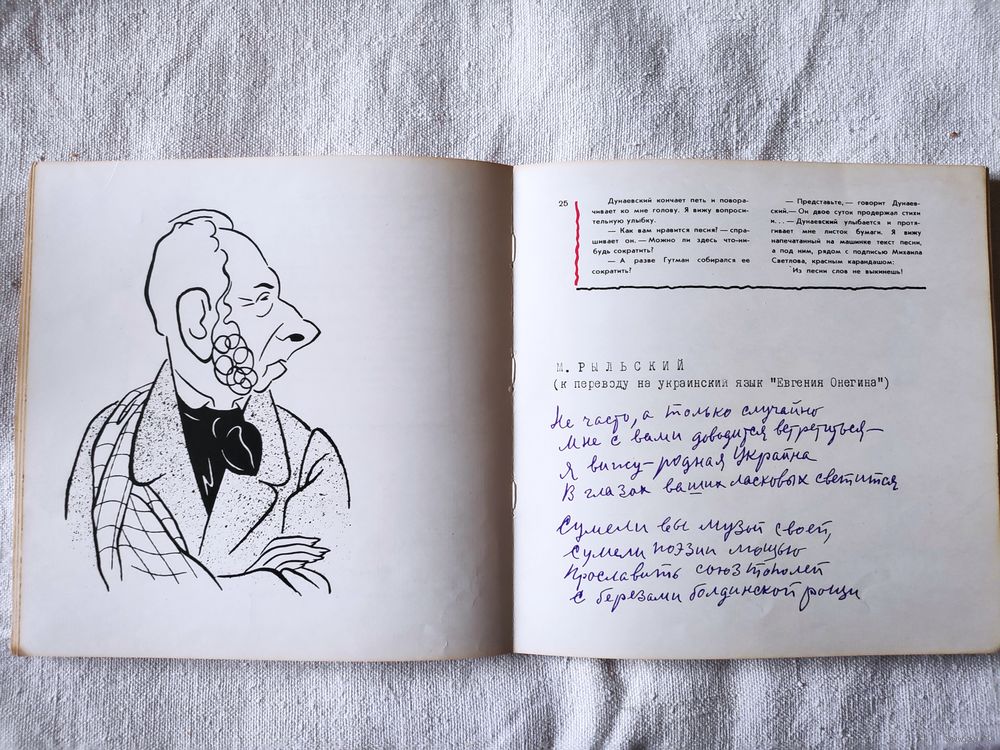 25
Дунаевский кончает петь и повора-
чивает ко мне голову. Я вижу вопроси-
тельную улыбку.
— Как вам нравится песня? — спра-
шивает он. — Можно ли здесь что-ни-
будь сократить?
— А разве Гутман собирался ее
сократить?
— Представьте, — говорит Дунаев-
ский. — Он двое суток продержал стихи
и... — Дунаевский улыбается и протя-
гивает мне листок бумаги. Я вижу
напечатанный на машинке текст песни,
а под ним, рядом с подписью Михаила
Светлова, красным карандашом:
Из песни слов не выкинешь!
М. РЫЛЬСКИЙ
(к переводу на украинский язык "Евгения Онегина")
Не часто, а только случайно
Мне с вами доводится встретиться—
Я вижу – родная Украйна
В глазах ваших ласковых светится
Сумели вы музы своей,
Сумели поэзии мощью
Прославить союз тополей
С березами болдинской рощи